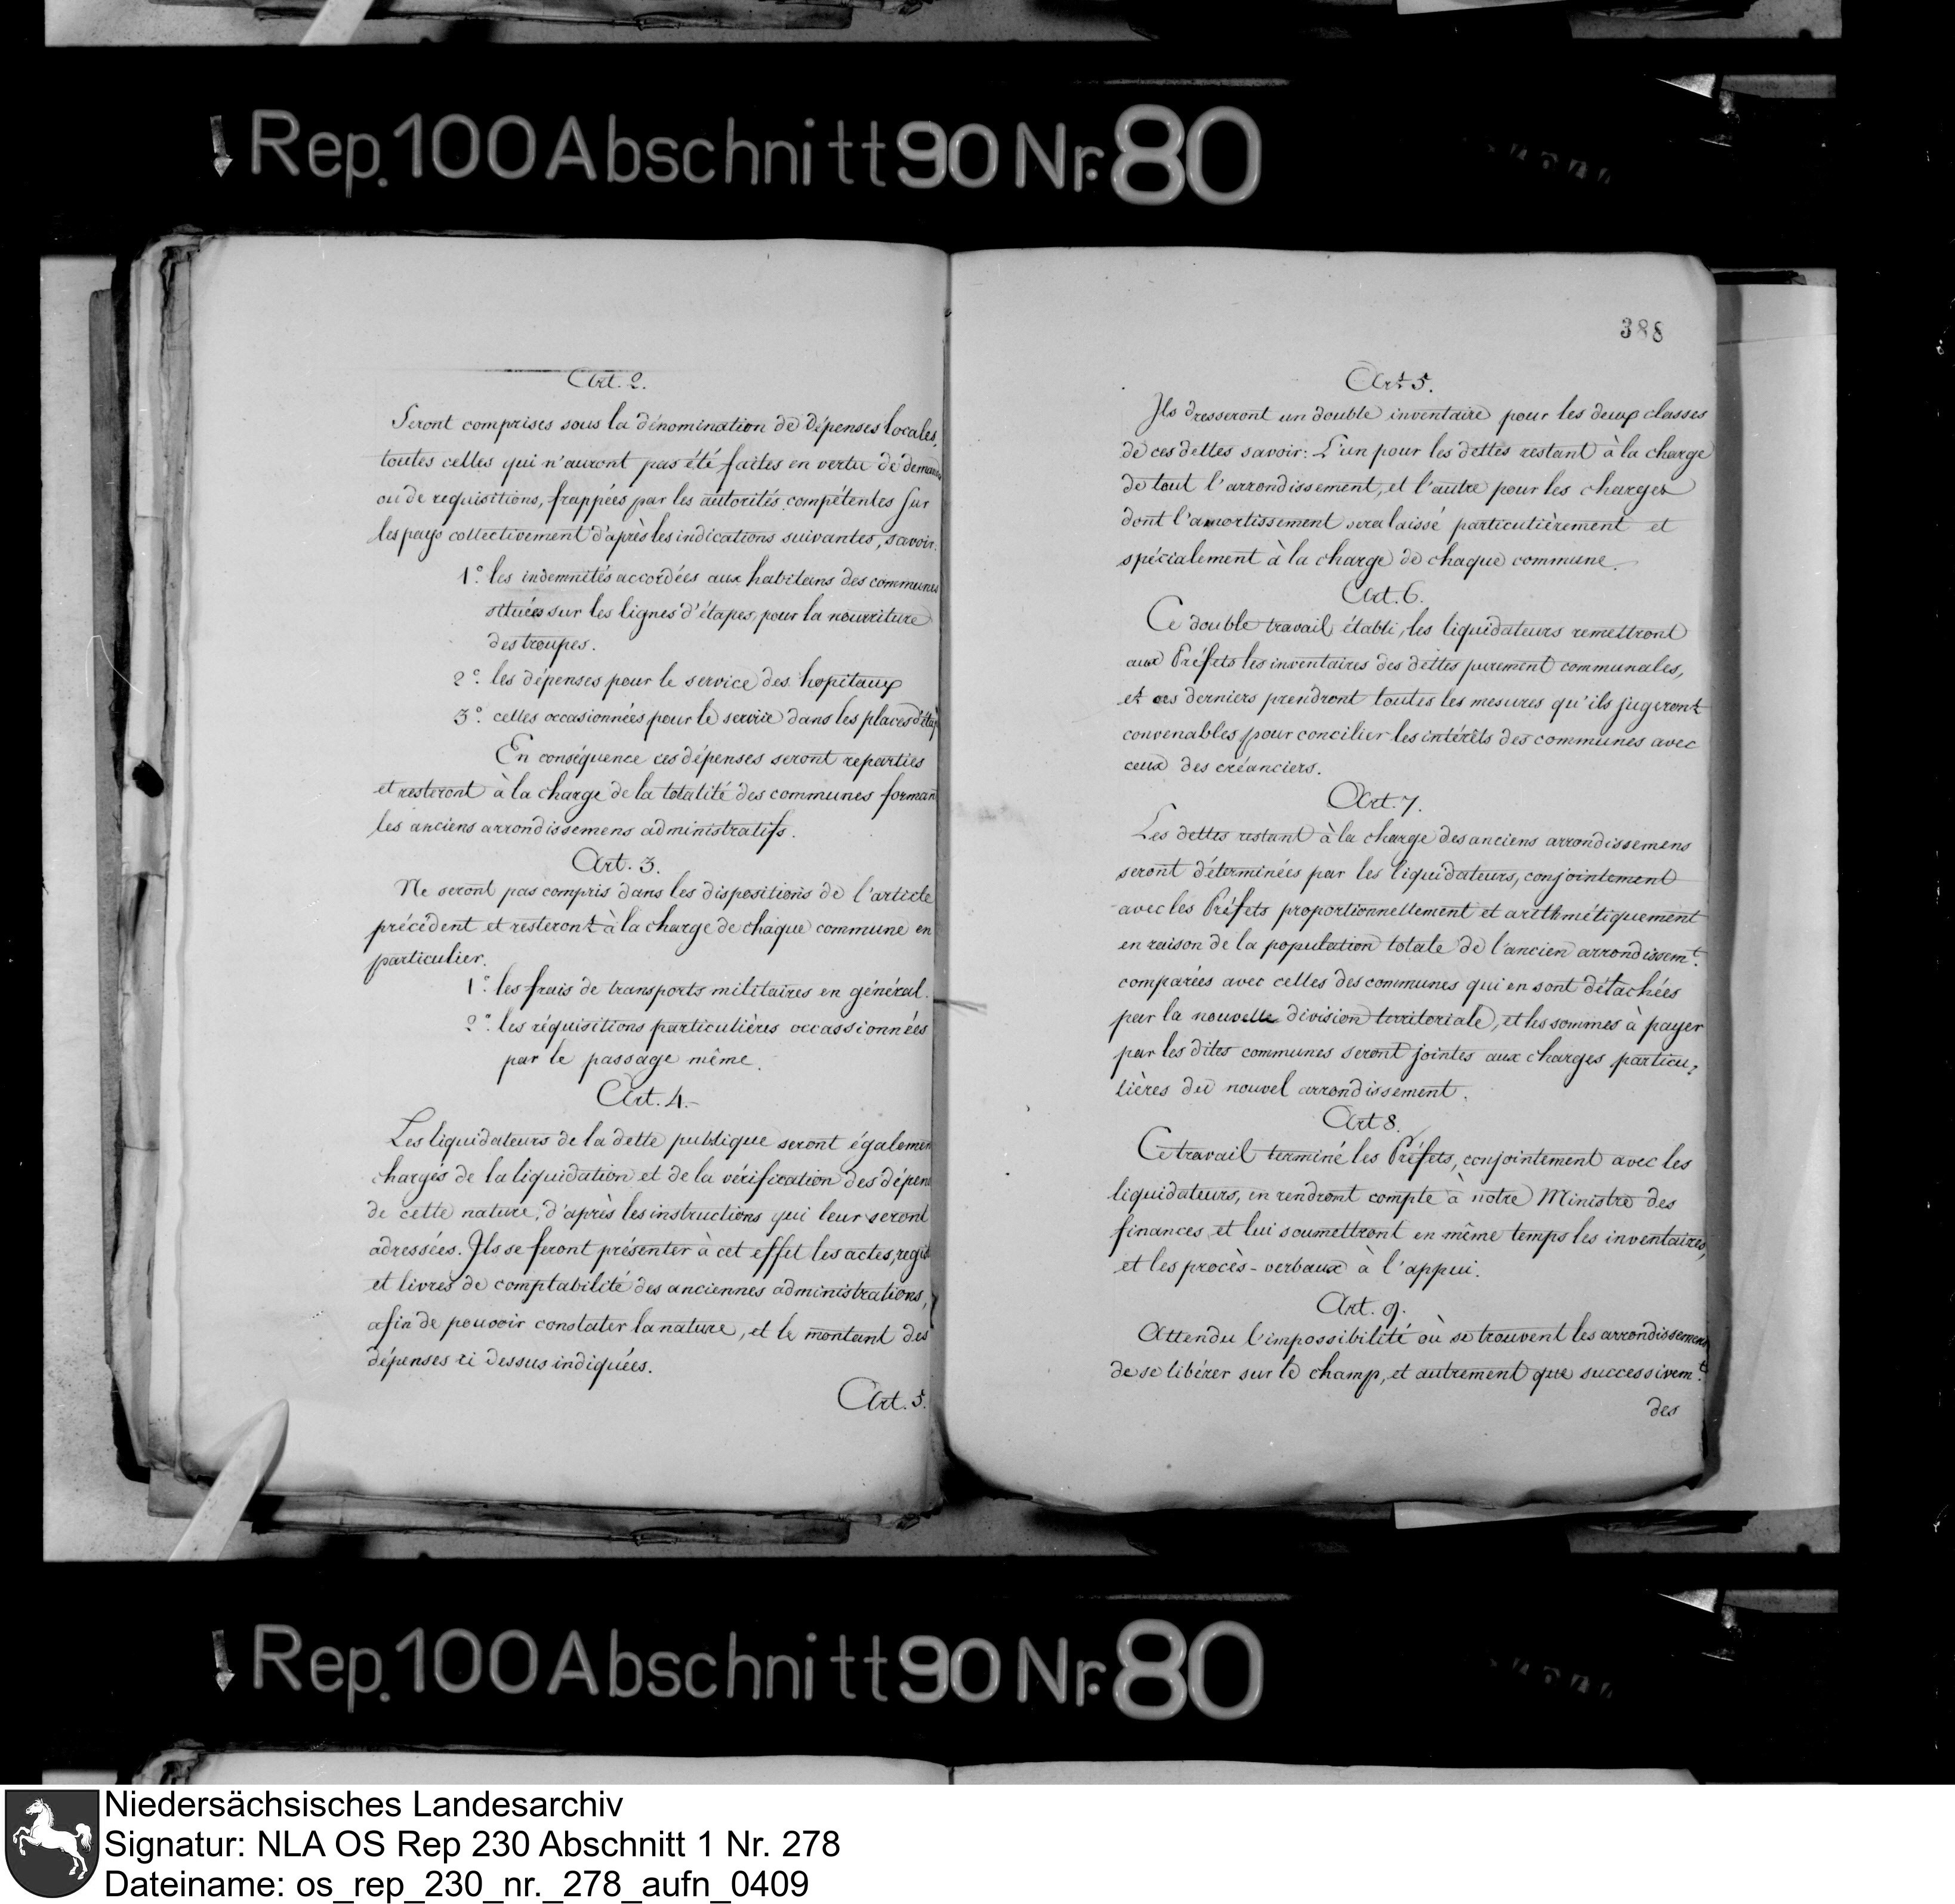 Rep. 100 Abschnitt 90 Nr. 80
Art. 2.
Seront comprises sous la dénomination de Dépenses locales,
toutes celles qui n'auront pas été faites en vertu de deman
ou de requisitions, frappées par les autorités compétentes sur
les pays collectivement d'après les indications suivantes, savoir.
1.° les indemnités accordées aux habitans des communes
situées sur les lignes d'étapes, pour la nourriture
des troupes.
2.° les dépenses pour le service des hopitaux
3.° celles occasionnées pour le service dans les places d'étap
En conséquence ces dépenses seront reparties
et resteront à la charge de la totalité des communes forman
les anciens arrondissemens administratifs.
Art. 3.
Ne seront pas compris dans les dispositions de l'article
précédent et resteront à la charge de chaque commune en
particulier.
1.° les frais de transports militaires en général.
2.° les réquisitions particulières occassionnées
par le passage même.
Art. 4.-
Les liquidateurs de la dette publique seront égalemen
chargés de la liquidation et de la vérification des dépen
de cette nature, d'après les instructions qui leur seront
adressées. Ils se feront présenter à cet effet les actes, regis
et livres de comptabilité des anciennes administrations,
afin de pouvoir constater la nature, et le montant des
dépenses ci dessus indiquées.
Art. 5.
388
Art 5.
Ils dresseront un double inventaire pour les deux classes
de ces dettes savoir: L'un pour les dettes restant à la charge
de tout l'arrondissement, et l'autre pour les charges
dont l'amortissement sera laissé particulièrement et
spécialement à la charge de chaque commune.
Art. 6.
Ce double travail établi, les liquidateurs remettront
aux Préfets les inventaires des dettes purement communales,
et ces derniers prendront toutes les mesures qu'ils jugeront
convenables pour concilier les intérêts des communes avec
ceux des créanciers.
Art. 7.
Les dettes restant à la charge des anciens arrondissemens
seront déterminées par les liquidateurs, conjointement
avec les Préfets proportionnellement et arithmétiquement
en raison de la population totale de l'ancien arrondissem.t
comparées avec celles des communes qui en sont détachées
par la nouvelle division territoriale, et les sommes à payer
par les dites communes seront jointes aux charges particu,
lières du nouvel arrondissement.
Art 8.
Ce travail terminé les Préfets, conjointement avec les
liquidateurs, en rendront compte à notre Ministre des
finances et lui soumettront en même temps les inventaires,
et les procès-verbaux à l'appui.
Art. 9.
Attendu l'impossibilité où se trouvent les arrondissemens
de se libérer sur le champ, et autrement que successivem.t
des
Rep. 100 Abschnitt 90 Nr. 80
Niedersächsisches Landesarchiv
Signatur: NLA OS Rep 230 Abschnitt 1 Nr. 278
Dateiname: os_rep_230_nr._278_aufn_0409